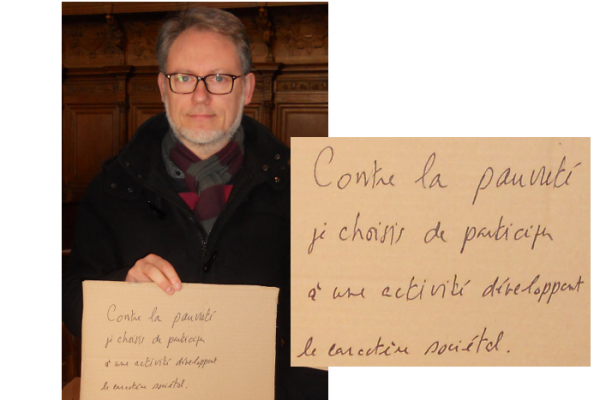 Contre la pauvreté
je choisis de participer
à une activité développant
le caractère sociétal.
Contre la pauvreté
je choisis de participer
à une activité développant
le caractère sociétal.